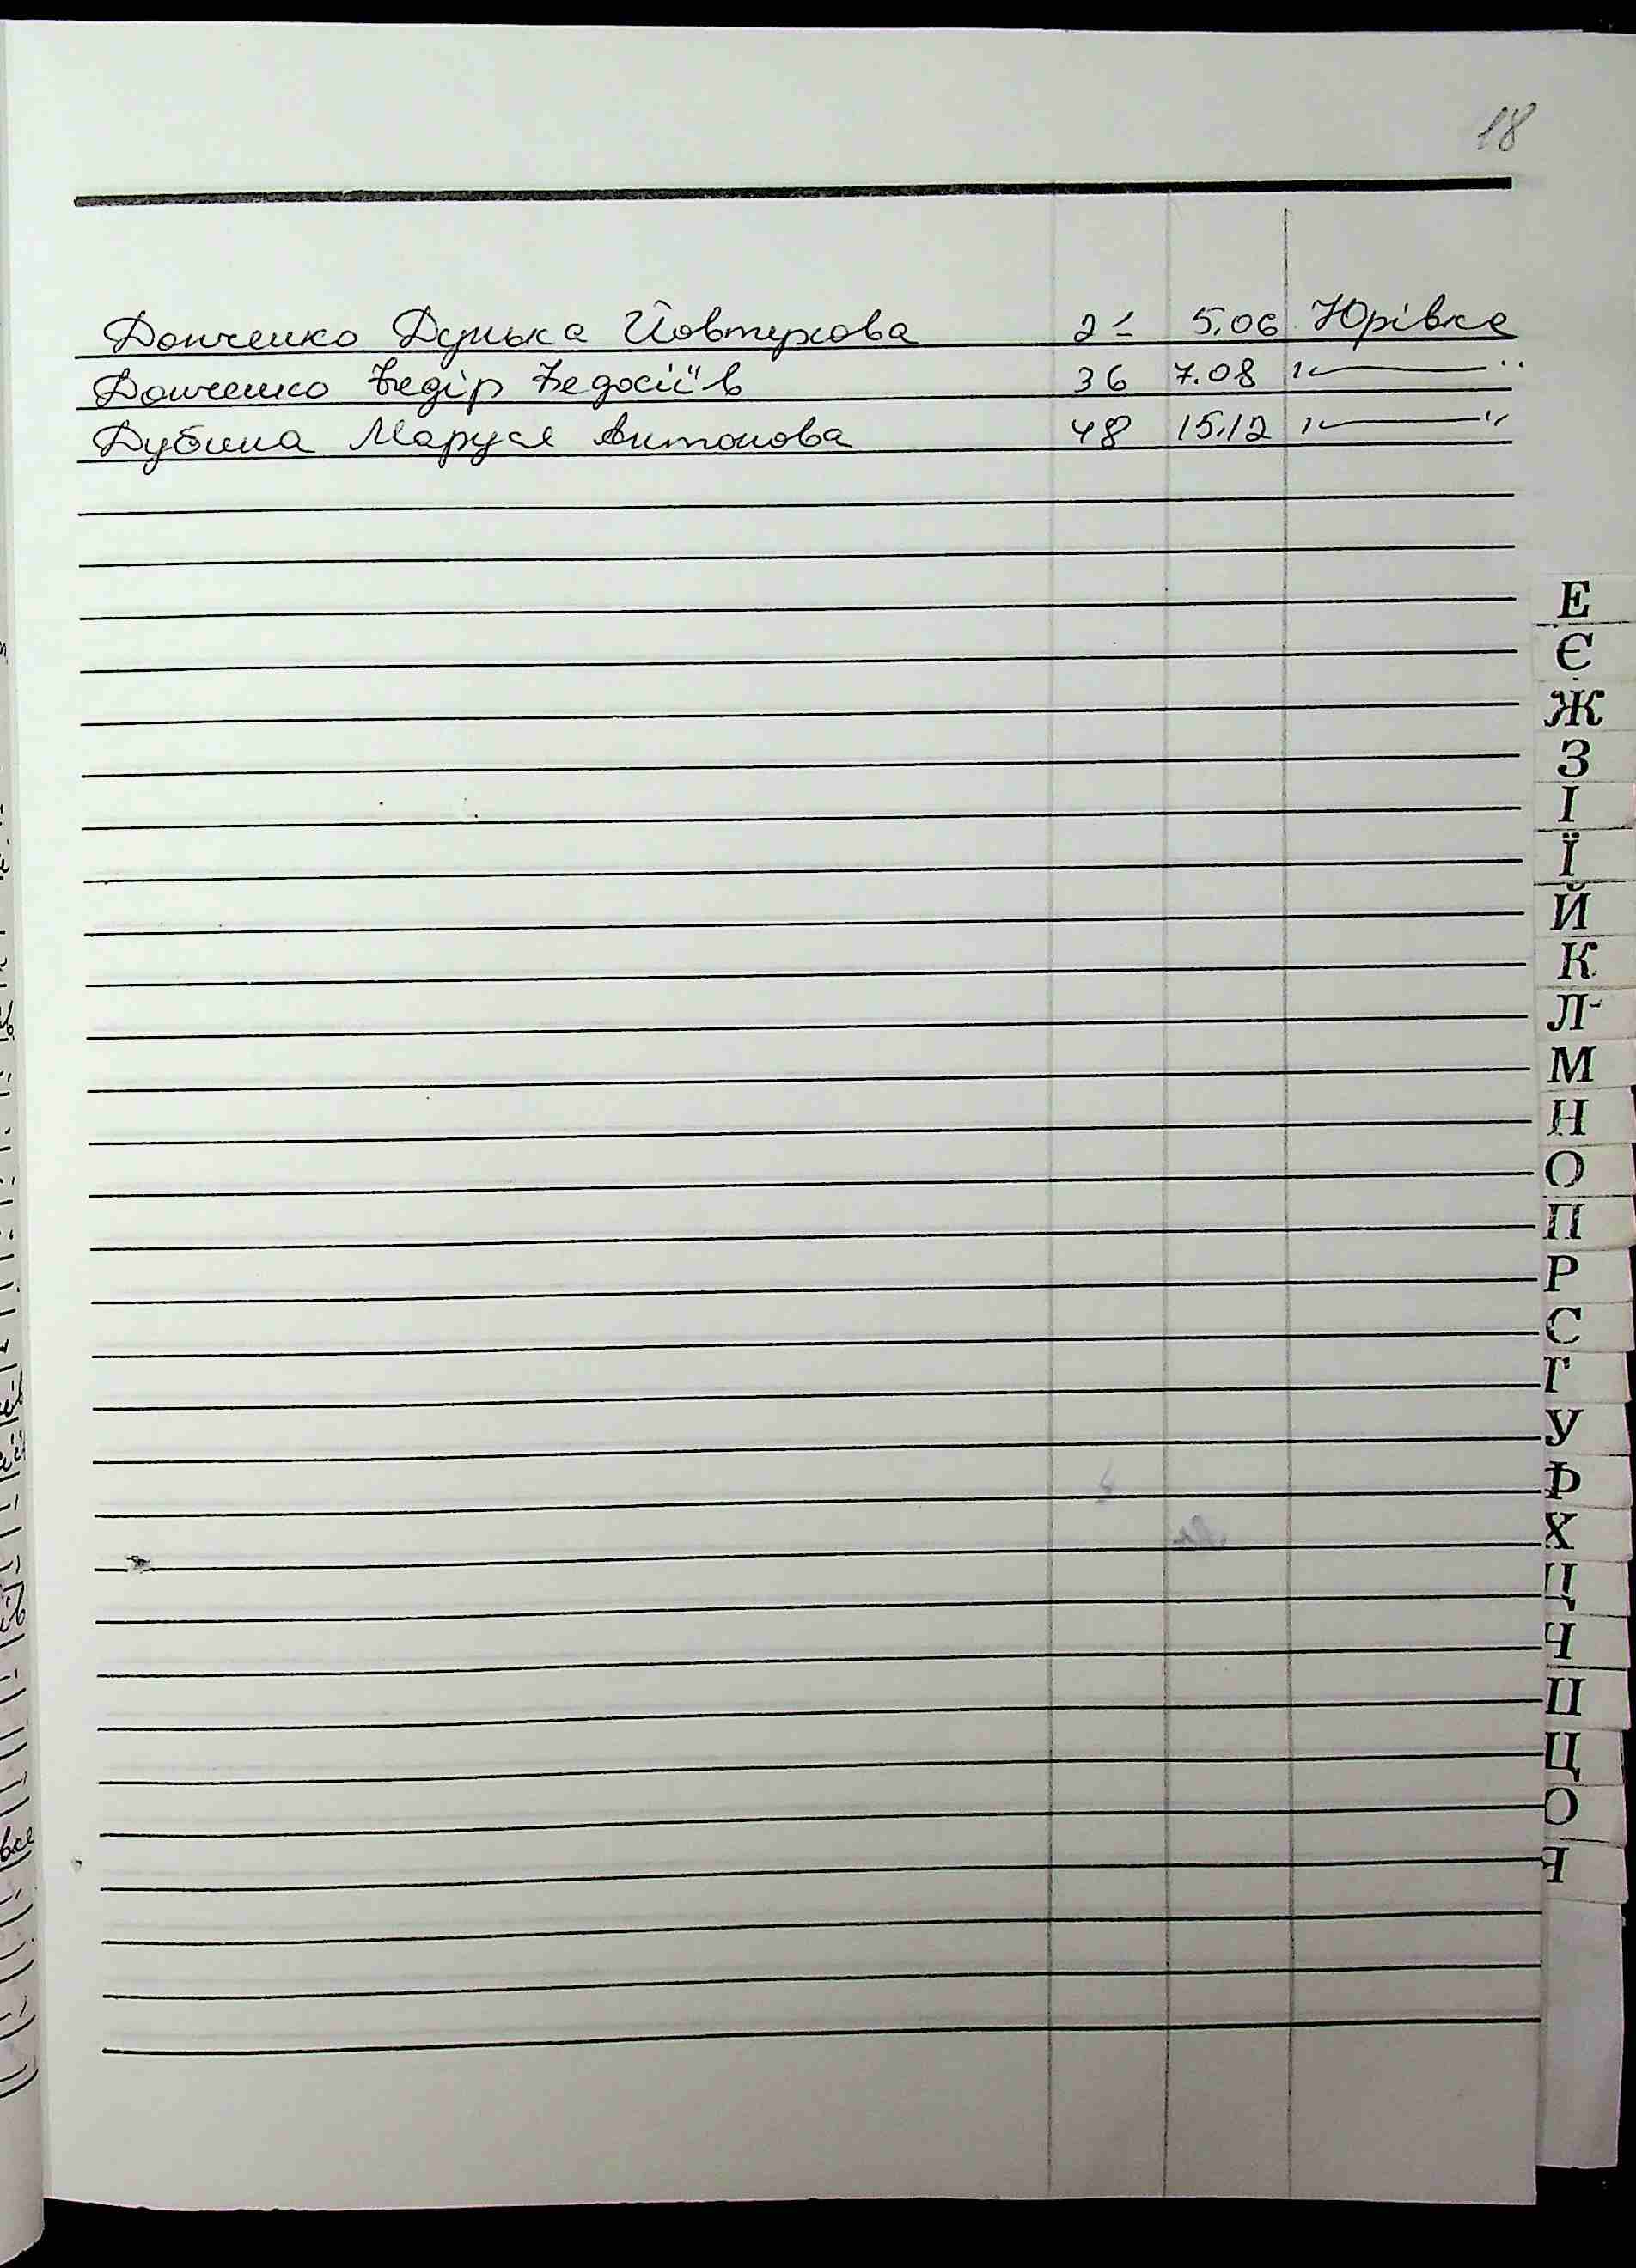 18
Донченко Дунька Йовтухова 21 5.06 Юрівка
Донченко Федір Федосіїв 36 7.08 "—"
Дубина Маруся Антонова 48 15.12 "—"
Е
Є
Ж
З
І
Ї
Й
К
Л
М
Н
О
П
Р
С
Т
У
Ф
Х
Ц
Ч